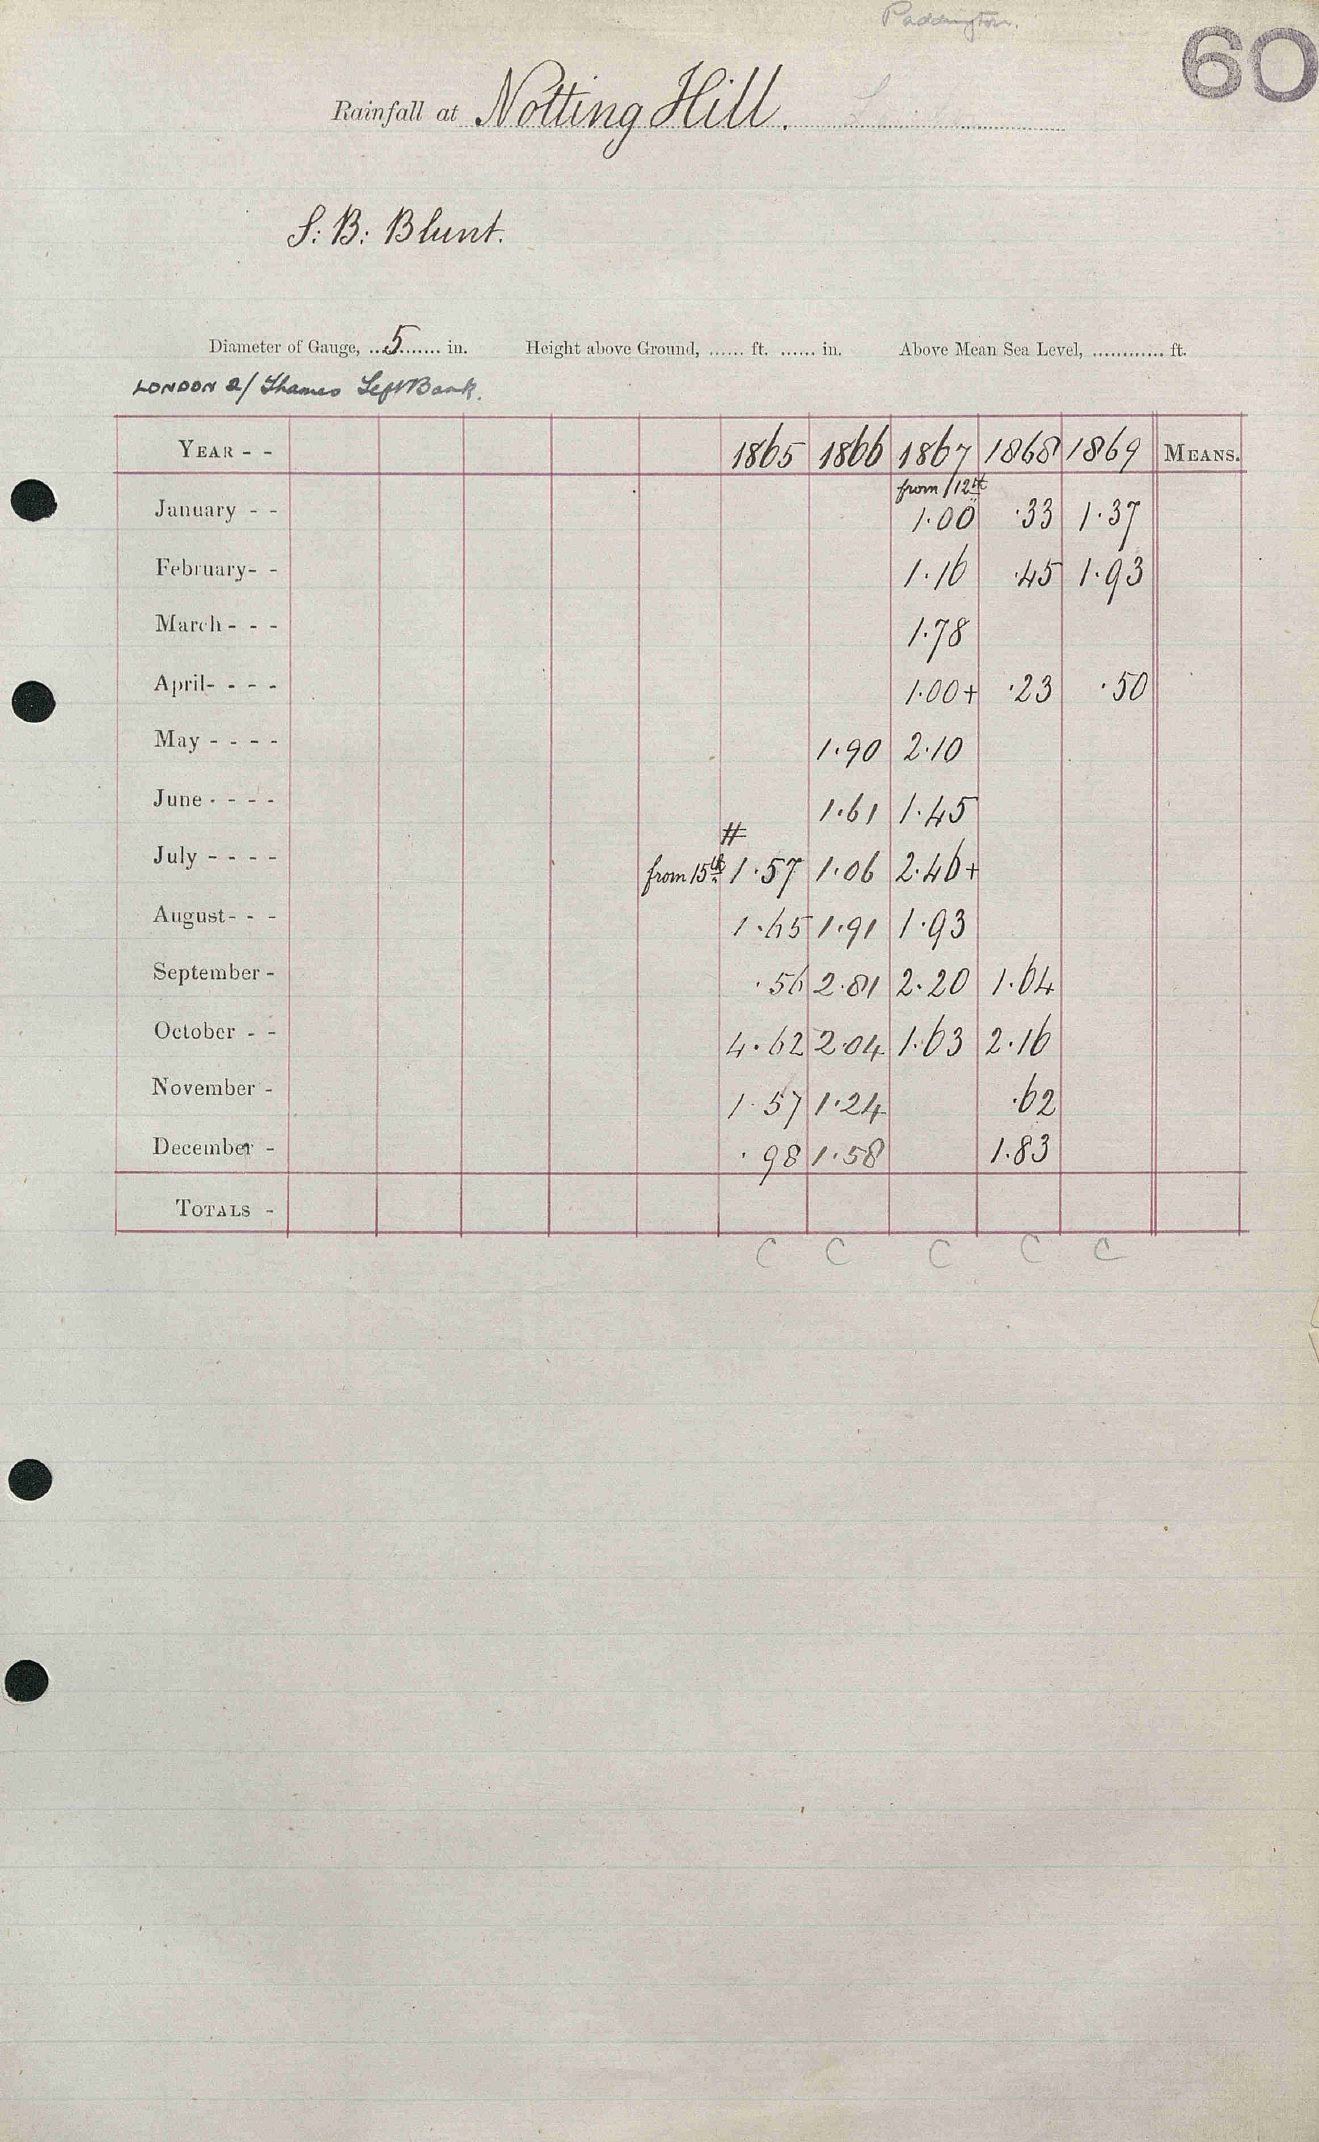 Paddington.
60
Rainfall at Notting Hill.
S: B: Blunt.
Diameter of Gauge, ...5....... in. Height above Ground, ...... ft. ...... in. Above Mean Sea Level, ............ ft.
LONDON 2/ Thames Left Bank.
YEAR - - 1865 1866 1867 1868 1869 MEANS.
from 12th
January - - 1.00 .33 1.37
February- - 1.16 .45 1.93
March - - - 1.78
April- - - - 1.00+ .23 .50
May - - - - 1.90 2.10
June - - - - 1.61 1.45
#
July - - - - from 15th 1.57 1.06 2.46+
August- - - 1.65 1.91 1.93
September - .56 2.81 2.20 1.64
October - - 4.62 2.04 1.63 2.16
November - 1.57 1.24 .62
December - .98 1.58 1.83
TOTALS -
C C C C C